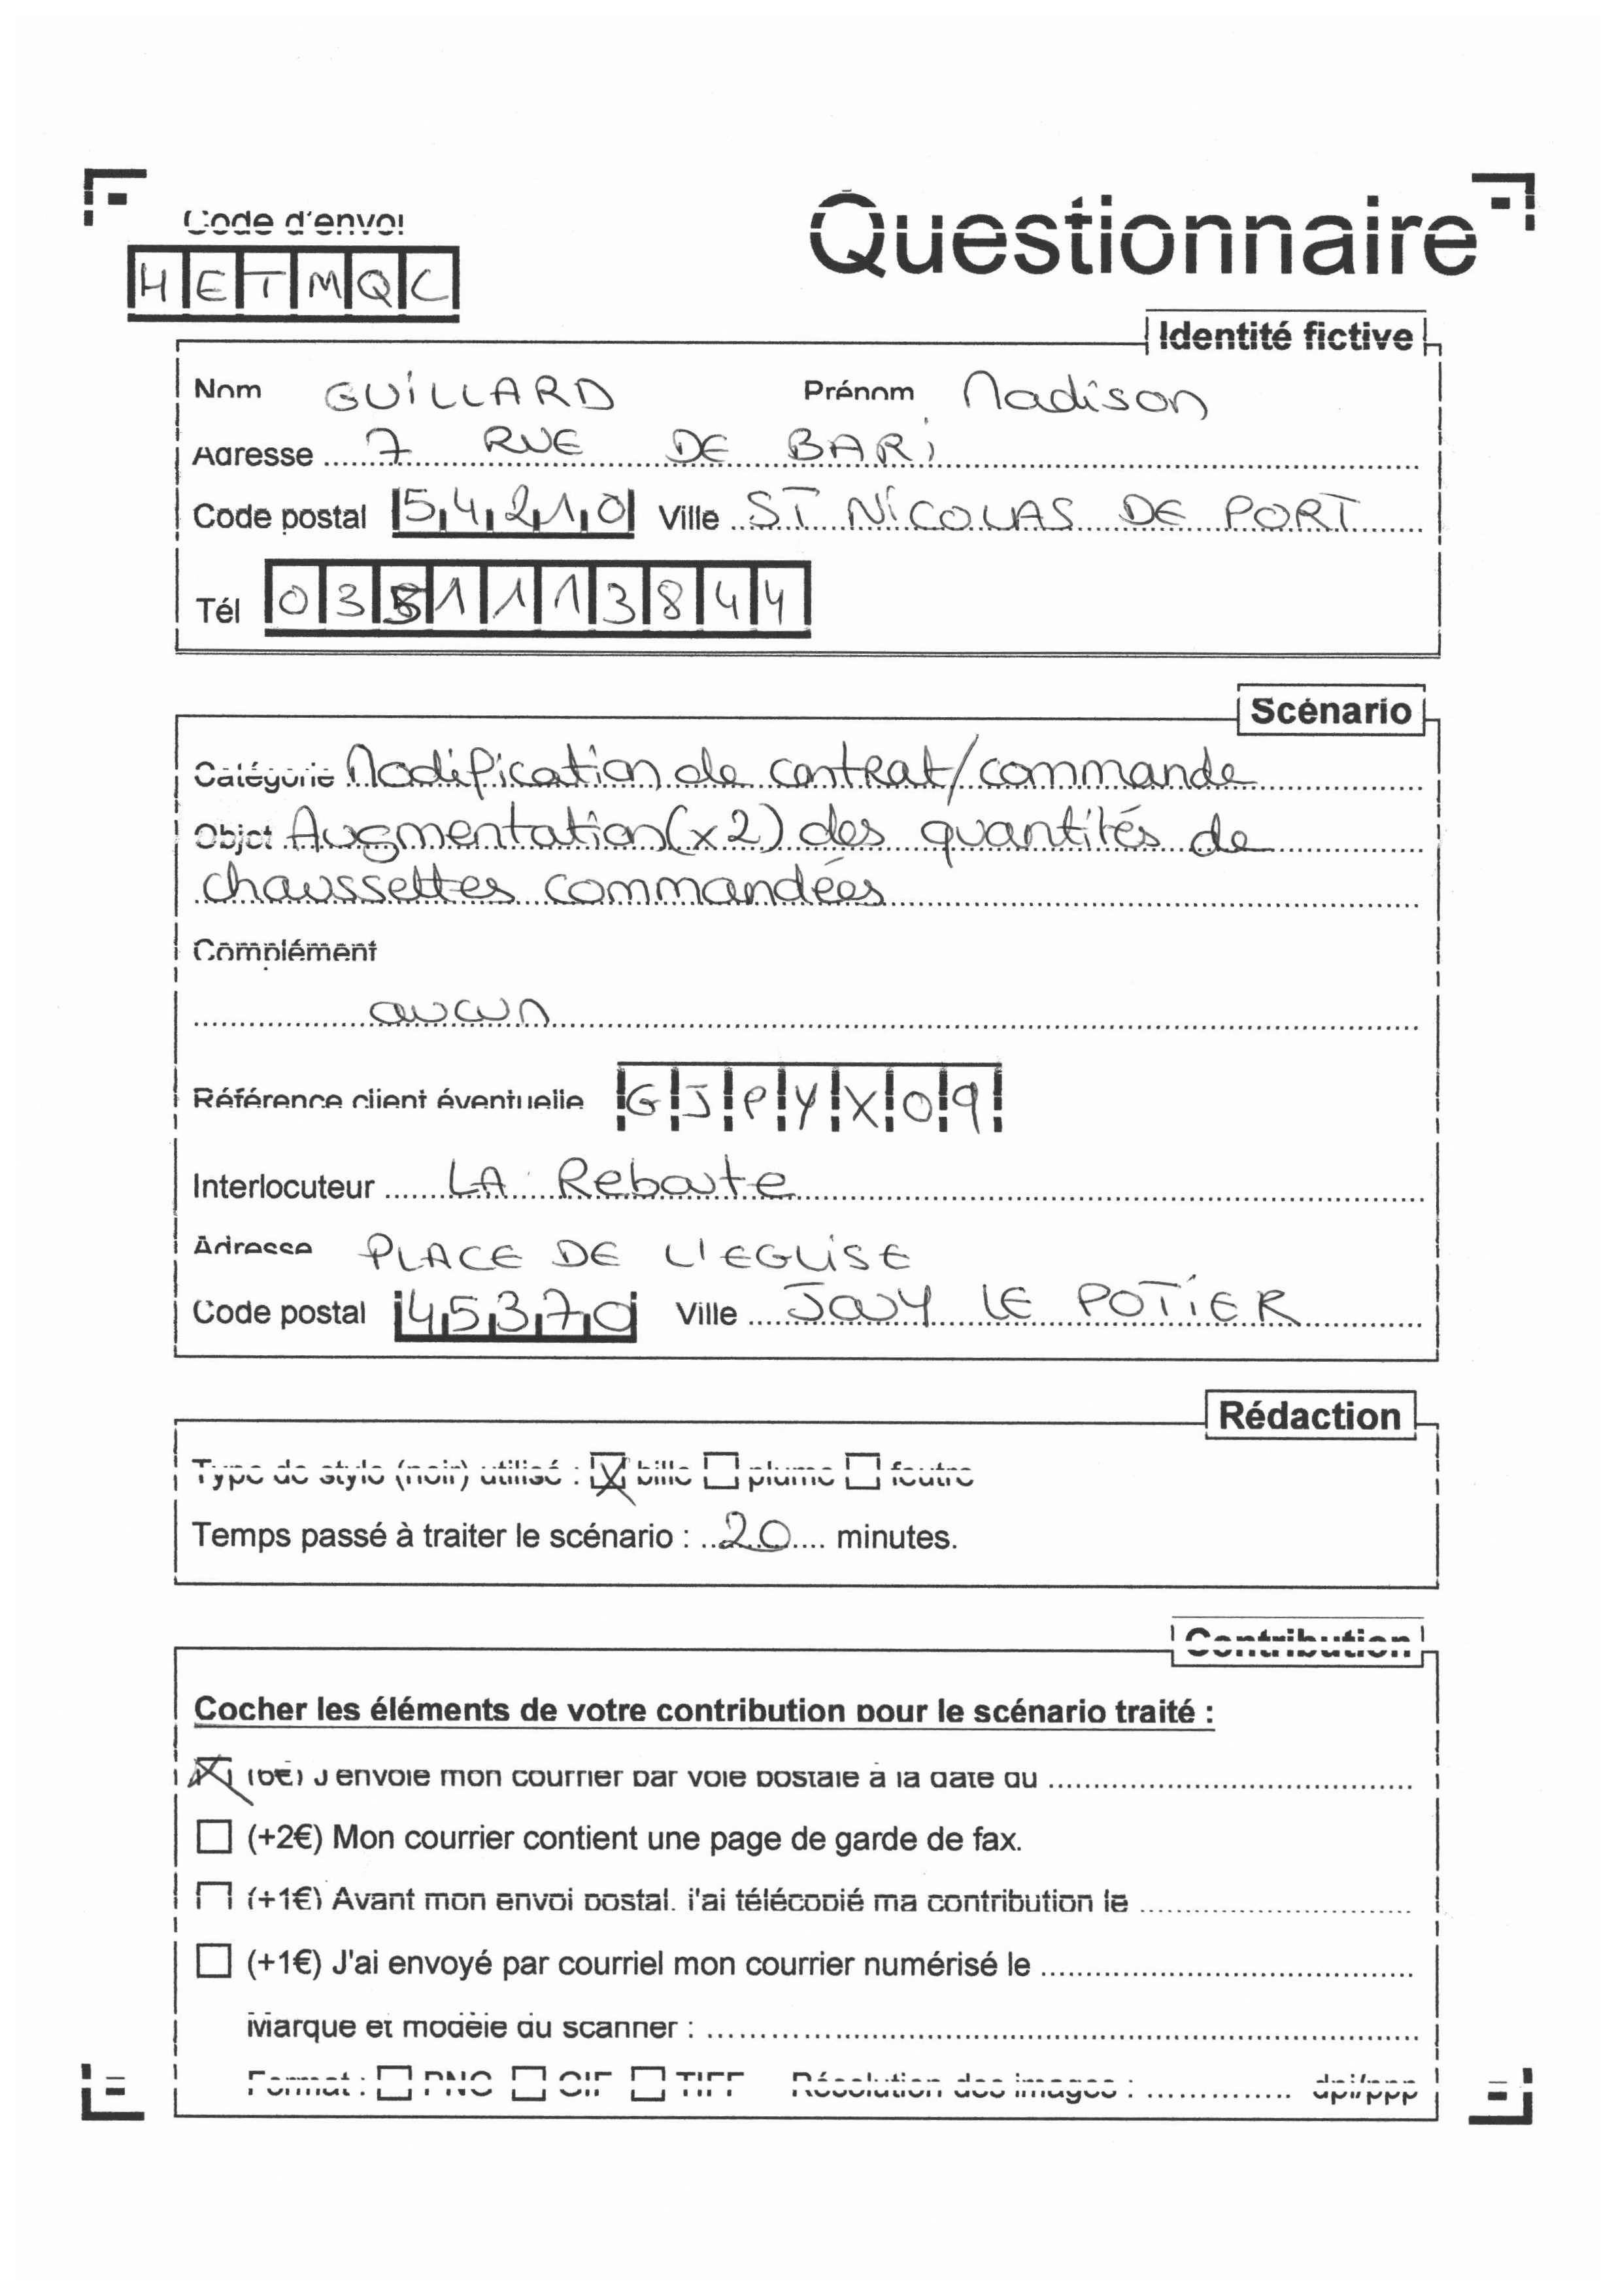 Code d'envoi
Questionnaire
HETMQC
Identité fictive
Nom GUILLARD Prénom Madison
Adresse 7 RUE DE BARI
Code postal 54210 Ville ST NICOLAS DE PORT
Tél 0351113844
Scénario
Catégorie Modification de contrat/commande
Objet Augmentation (x2) des quantités de
chaussettes commandées
Complément
aucun
Référence client éventuelle GJPYX09
Interlocuteur LA Reboute
Adresse PLACE DE L'EGLISE
Code postal 45370 Ville JOUY LE POTIER
Rédaction
Type de stylo (noir) utilisé : ☒ bille ☐ plume ☐ feutre
Temps passé à traiter le scénario : 20 minutes.
Contribution
Cocher les éléments de votre contribution pour le scénario traité :
☒ (6€) J'envoie mon courrier par voie postale à la date du
☐ (+2€) Mon courrier contient une page de garde de fax.
☐ (+1€) Avant mon envoi postal, j'ai télécopié ma contribution le
☐ (+1€) J'ai envoyé par courriel mon courrier numérisé le
Marque et modèle du scanner :
Format : ☐ PNG ☐ GIF ☐ TIFF Résolution des images : dpi/ppp